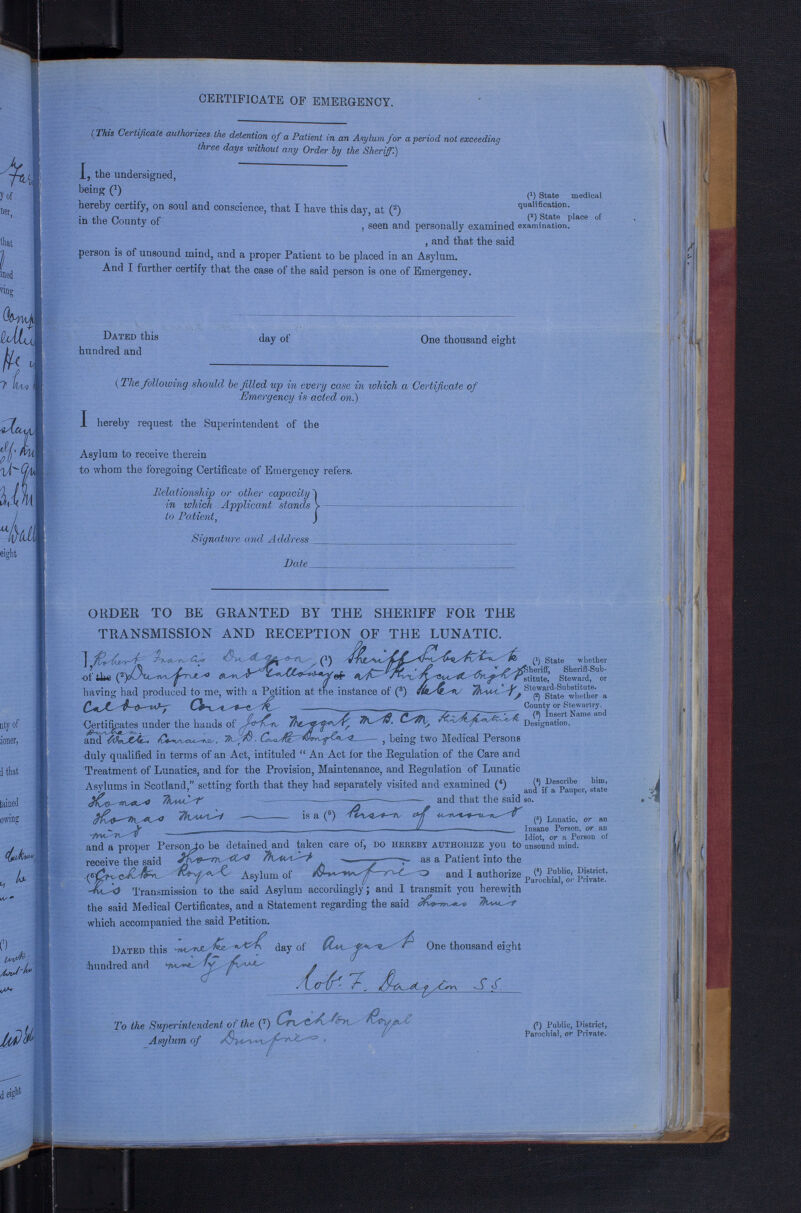 CERTIFICATE OF EMERGENCY.
(This Certificate authorizes the detention of a Patient in an Asylum for a period not exceeding
three days without any Order by the Sheriff.)
I, the undersigned,
being (¹)
hereby certify, on soul and conscience, that I have this day, at (²)
in the County of , seen and personally examined
, and that the said
person is of unsound mind, and a proper Patient to be placed in an Asylum.
And I further certify that the case of the said person is one of Emergency.
(¹) State medical
qualification.
(²) State place of
examination.
DATED this day of One thousand eight
hundred and
(The following should be filled up in every case in which a Certificate of
Emergency is acted on.)
I hereby request the Superintendent of the
Asylum to receive therein
to whom the foregoing Certificate of Emergency refers.
Relationship or other capacity
in which Applicant stands
to Patient,
Signature and Address
Date
ORDER TO BE GRANTED BY THE SHERIFF FOR THE
TRANSMISSION AND RECEPTION OF THE LUNATIC.
I, Robert Francis Dudgeon, (¹) Sheriff Substitute
of the (²) Dumfries and Galloway at Kirkcudbright
having had produced to me, with a Petition at the instance of (³) Helen Muir
Certificates under the hands of John Meggat, M.B. C.M., Kirkpatrick
Durham
and Walter M.D. Castle Douglas , being two Medical Persons
duly qualified in terms of an Act, intituled “ An Act for the Regulation of the Care and
Treatment of Lunatics, and for the Provision, Maintenance, and Regulation of Lunatic
Asylums in Scotland,” setting forth that they had separately visited and examined (⁴)
Thomas Muir and that the said
Thomas Muir is a (⁵) Person of unsound
mind
and a proper Person to be detained and taken care of, DO HEREBY AUTHORIZE YOU to
receive the said Thomas Muir as a Patient into the
(⁶) Crichton Royal Asylum of Dumfries and I authorize
his Transmission to the said Asylum accordingly; and I transmit you herewith
the said Medical Certificates, and a Statement regarding the said Thomas Muir
which accompanied the said Petition.
(¹) State whether
Sheriff, Sheriff-Sub-
stitute, Steward, or
Steward-Substitute.
(²) State whether a
County or Stewartry.
(³) Insert Name and
Designation.
(⁴) Describe him,
and if a Pauper, state
so.
(⁵) Lunatic, or an
Insane Person, or an
Idiot, or a Person of
unsound mind.
(⁶) Public, District,
Parochial, or Private.
DATED this nineteenth day of August One thousand eight
hundred and ninety five
Robt. F. Dudgeon S.S.
To the Superintendent of the (⁷) Crichton Royal
Asylum of Dumfries.
(⁷) Public, District,
Parochial, or Private.